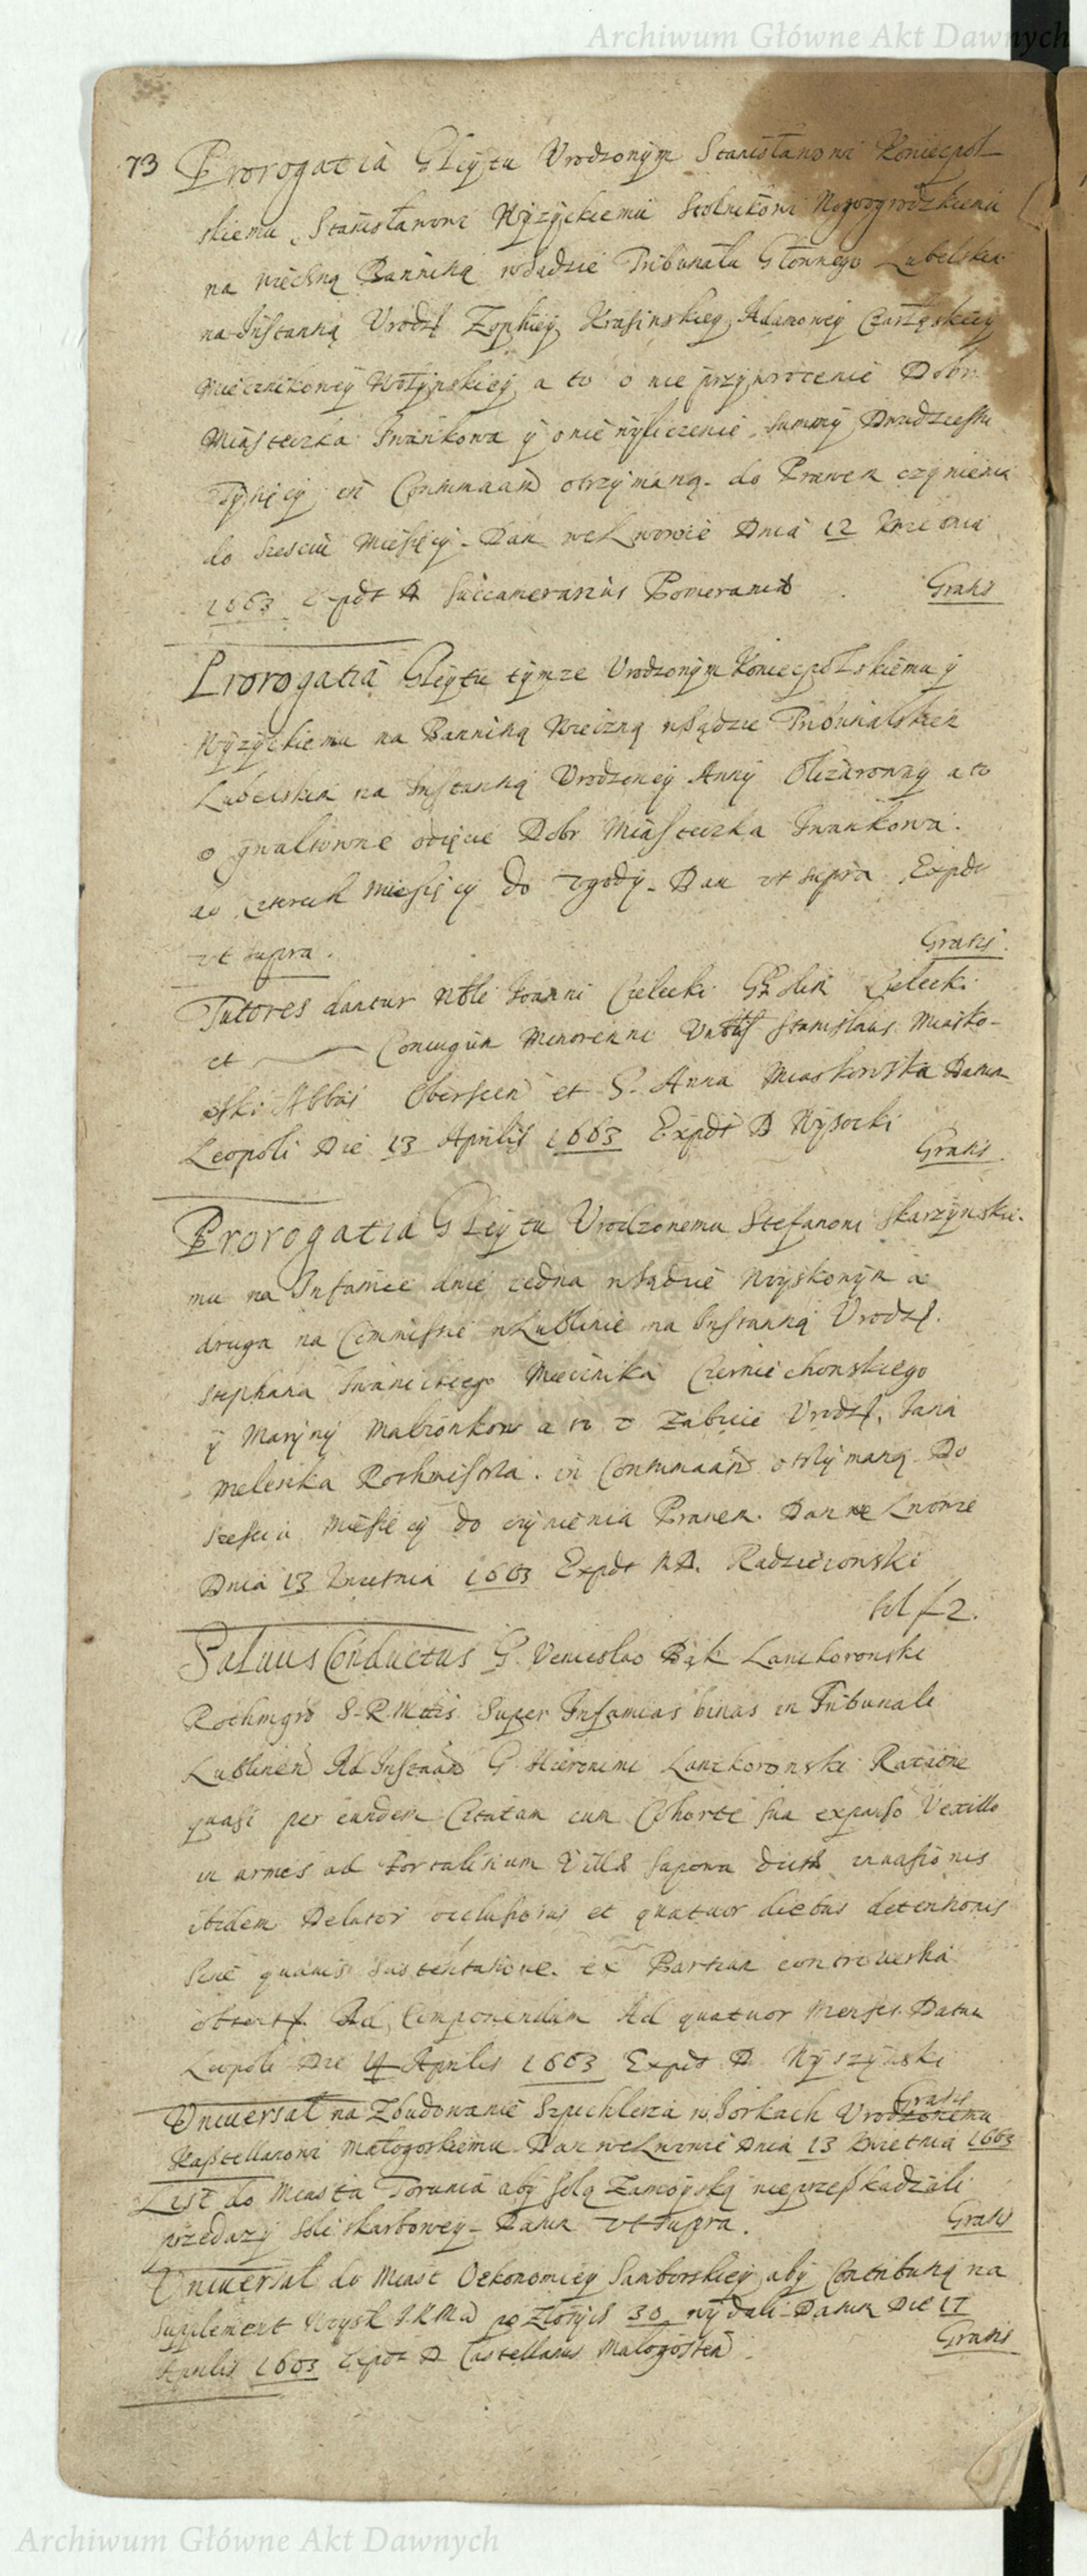 Archiwum Główne Akt Dawnych
73 Prorogatia Gleytu Vrodzonym Stanisławowi Koniecpol-
skiemu, Stanisławowi Wyzyckiemu Stolnikowi Nowogrodzkiemu
na wieczną Bannicią wsądzie Tribunału Głownego Lubelskie
na Instantią Vrodz Zophiey Krasinskiey Adamowey Czarłęskiey
Miecznikowey Wołynskiey a to o nie przywrocenie Dobr
Miasteczka Iwankowa y onie wyliczenie Summy Dwudziestu
Tysięcy in Contumaam otrzymaną do Prawen czynienia
do sześciu Miesięcy Dan we Lwowie Dnia 12 Kwietnia
1663 Expdt D Succamerarius Pomeraniæ Gratis
Prorogatia Gleytu tymze Vrodzonym Koniecpolskiemu y
Wyzyckiemu na Bannicią Wieczną wsądzie Tribunalskim
Lubelskim na Instantią Vrodzoney Anny Olizarowny a to
o gwałtowne odięcie Dobr Miasteczka Iwankowa.
do czterech Miesięcy do zgody. Dan vt supra Expdt
vt supra. Gratis
Tutores dantur Nobli Ioanni Cielecki Cielecki
et Coniugum Minorenni Stanislaus Miasko-
wski Abbas et G. Anna Miaskowska Datum
Leopoli Die 13 Aprilis 1663 Expdt D Wysocki
Gratis
Prorogatia Gleytu Vrodzonemu Stefanowi Skarzynskie-
mu na Infamie dwie iedna wsądzie Woyskowym a
druga na Commissie w Lublinie na Instantią Vrodz.
Stephana Iwanickiego Miecznika Czerniechowskiego
y Maryny Małzonkow a to o zabicie Vrodz. Iana
Meleszka Rothmistrza. in Contumaam otrzymaną Do
sześciu Miesięcy do czynienia Prawen. Dan we Lwowie
Dnia 13 Kwietnia 1663 Expdt Radzieiowski
sol f 2.
Saluus Conductus G. Venceslao Bąk Lanckoronski
Rothmgro S. R. Mttis Super Infamias binas in Tribunali
Lublinen Ad Instaam G Hieronimi Lanckoronski Ratione
quasi per eundem Citatum cum Cohorte sua expanso Vexillo
in armis ad Fortalitium Villæ Sapowa dictæ inuasionis
ibidem Delator occlusionis et quatuor diebus detentionis
sine quauis sustentatione ex Partium controuersia
Ad Componendum Ad quatuor Menses Datum
Leopoli Die 14 Aprilis 1663 Expdt D Wyszynski
Gratis
Vniuersał na Zbudowanie Szpichlerza w Gorkach Vrodzonemu
Kasztellanowi Małogoskiemu Dan weLwowie Dnia 13 Kwietnia 1663
List do Miasta Torunia aby Solą Zamoyską nieprzeszkadzali
przedazy soli skarbowey Datum vt supra. Gratis
Vniuersał do Miast Oekonomiey Samborskiey aby Contributią na
Supplement Woysk I K Mci po Złotych 30 wydali Datum Die 17
Aprilis 1663 Expdt D Castellanus Malogosten Gratis
Archiwum Główne Akt Dawnych